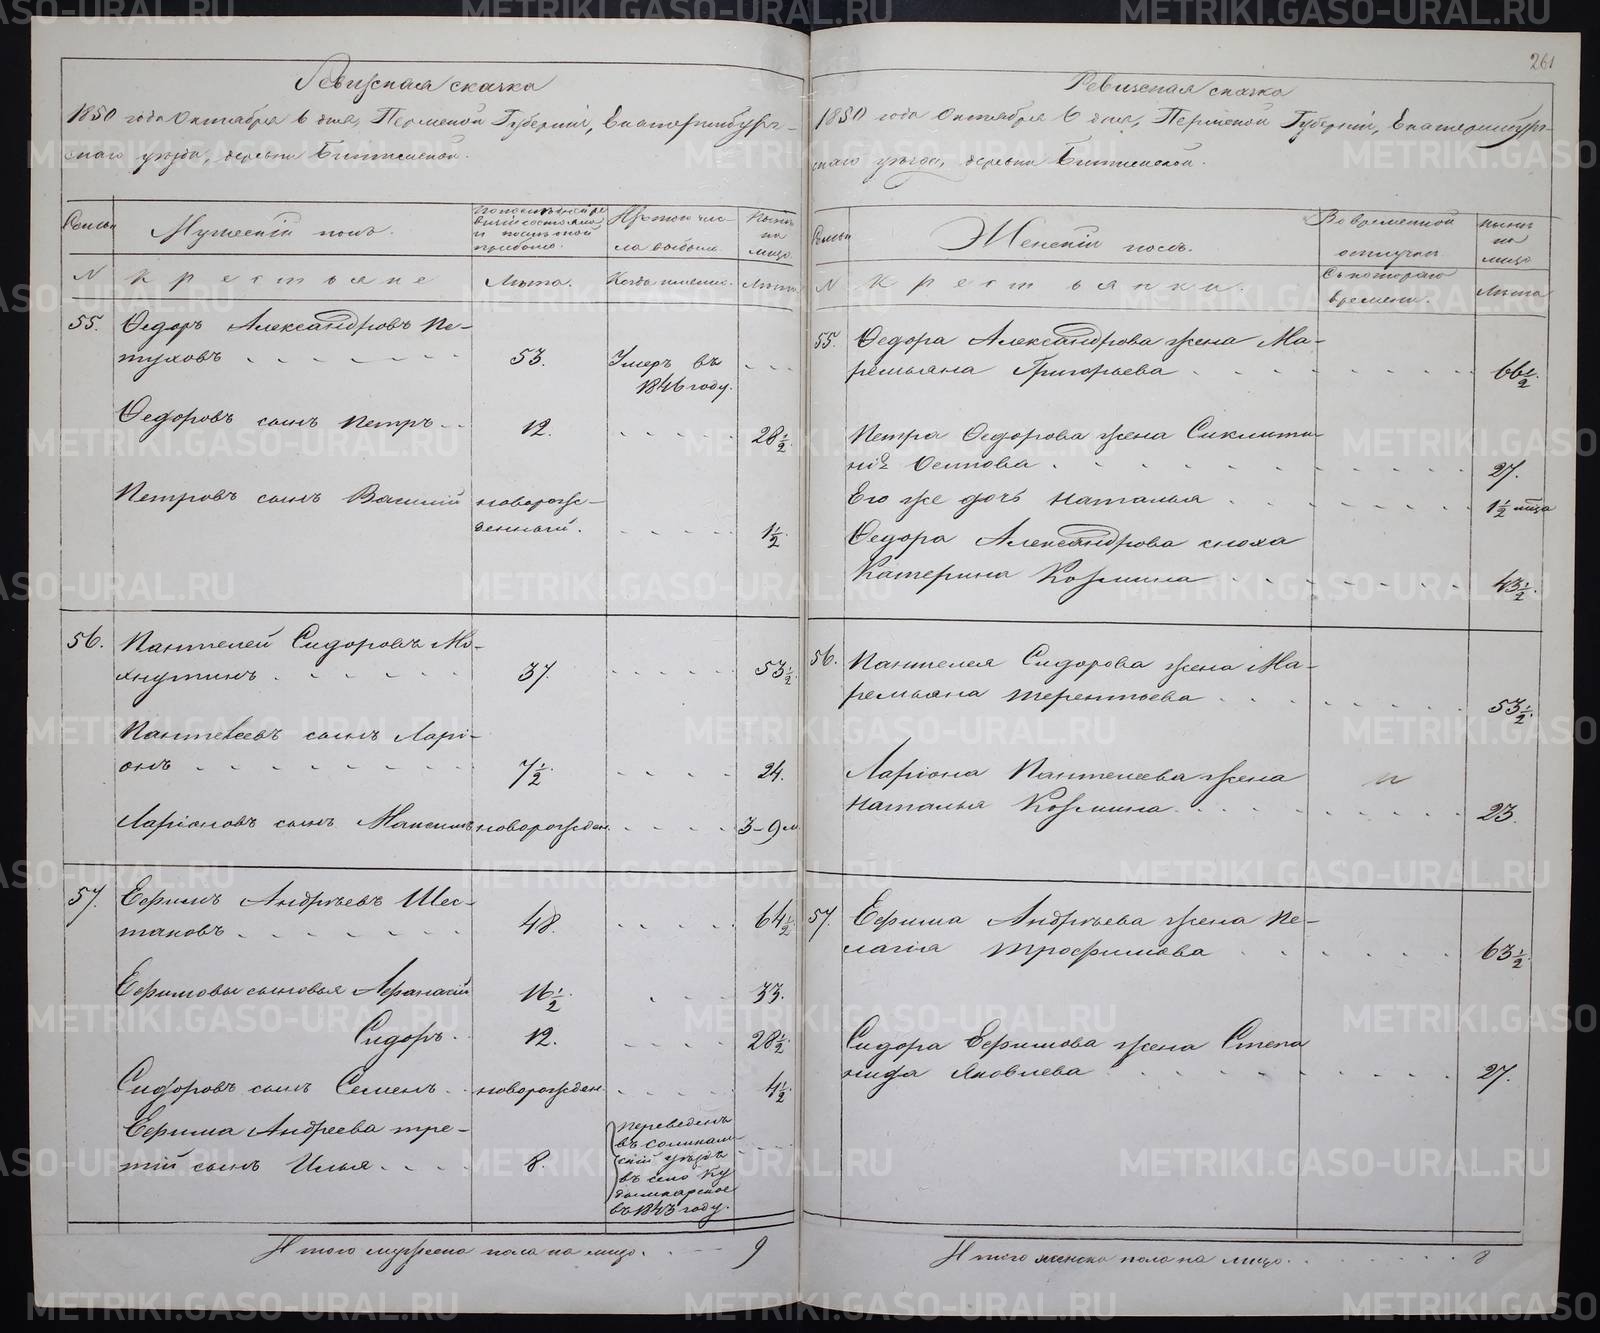 261
Ревизская сказка
1850 года Октября 6 дня, Пермской Губернiи, Екатеринбург-
скаго уезда, деревни
Семьи
Мужескiй полъ.
По последней ре
визiи состояло
и после той
прибыло.
Изъ того чис-
ла выбыло.
Ныне
на
лицо
N
Крестьяне
Лета.
Когда именно.
Лета
55. Ѳедоръ Александровъ Пе-
туховъ 53. Умеръ въ
1846 году.
Ѳедоровъ сынъ Петръ 12. 28 1/2.
Петровъ сынъ Василiй новорож-
денный. 1 1/2
56. Пантелей Сидоровъ Мо-
хнуткинъ 37. 53 1/2.
Пантелеевъ сынъ Ларi-
онъ 7 1/2 24.
Ларiоновъ сынъ Максимъ новорожден. 3-9 м.
57. Ефимъ Андреевъ Шес-
таковъ 48. 64 1/2
Ефимовы сыновья Афанасiй 16 1/2. 33.
Сидоръ. 12. 28 1/2.
Сидоровъ сынъ Семенъ новорожден. 4 1/2
Ефима Андреева тре-
тiй сынъ Илья 8. переведенъ
въ Соликам-
скiй уездъ
въ село Ку
дымкарское
въ 1843 году.
Итого мужеска пола на лицо. 9
Ревизская сказка
1850 года Октября 6 дня, Пермской Губернiи, Екатеринбург-
скаго уезда, деревни
Семьи
Женскiй полъ.
Во временной
отлучки
Ныне
на
лицо
N
Крестьянки.
Съ котораго
времени.
Лета
55. Ѳедора Александрова жена Ма-
ремьяна Григорьева 66 1/2.
Петра Ѳедорова жена
Осипова 27.
Его же дочь Наталья 1 1/2 мца
Ѳедора Александрова сноха
Катерина Козмина 43 1/2.
56. Пантелея Сидорова жена Ма-
ремьяна Терентьева 53 1/2.
Ларiона Пантелеева жена
Наталья Козмина 23.
57. Ефима Андреева жена Пе-
лагiя Трофимова 63 1/2.
Сидора Ефимова жена Степа
нида Яковлева 27.
Итого женска пола на лицо. 8
METRIKI.GASO-URAL.RU